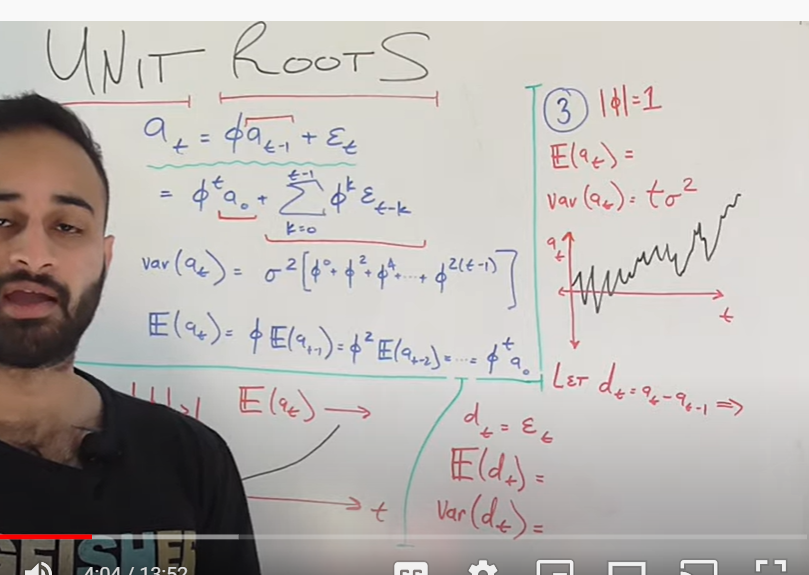 UNIT ROOTS
a_t = ϕa_{t-1} + ε_t
= ϕ^t a_0 + ∑_{k=0}^{t-1} ϕ^k ε_{t-k}
var(a_t) = σ²[ϕ⁰+ϕ²+ϕ⁴+...+ϕ^{2(t-1)}]
𝔼(a_t) = ϕ𝔼(a_{t-1}) = ϕ²𝔼(a_{t-2}) = ... = ϕ^t a_0
③ |ϕ|=1
𝔼(a_t) =
var(a_t) = tσ²
a_t
t
LET d_t = a_t - a_{t-1} ⇒
d_t = ε_t
𝔼(d_t) =
var(d_t) =
>1
𝔼(a_t) →
t
4:04 / 13:52
CC